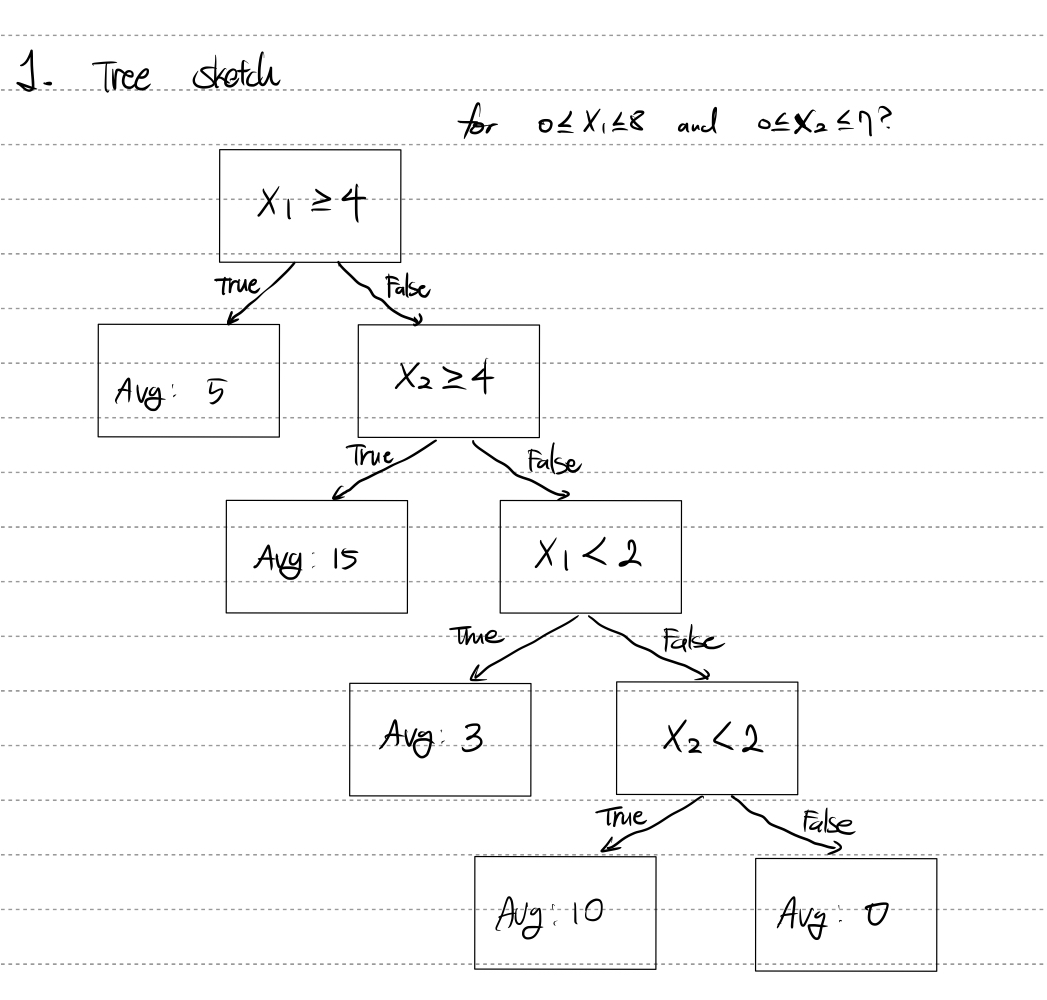 1. Tree sketch
for 0≤X₁≤8 and 0≤X₂≤7?
X₁ ≥4
True
False
Avg: 5
X₂ ≥4
True
False
Avg: 15
X₁ < 2
True
False
Avg: 3
X₂ < 2
True
False
Avg: 10
Avg: 0